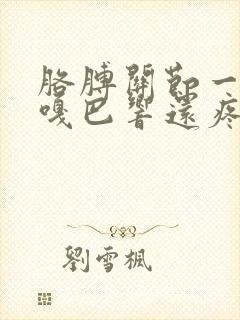 胳膊關節一
嘎巴響還疼
劉雪楓